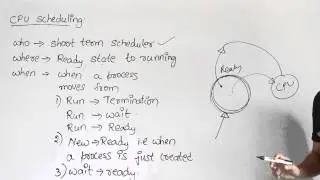 CPU scheduling
who → short term scheduler ✓
where → Ready state to running
when → when a process
moves from
1) Run → Termination
Run → wait
Run → Ready
2) New → Ready i.e when
a process is just created
3) wait → ready.
Ready
CPU